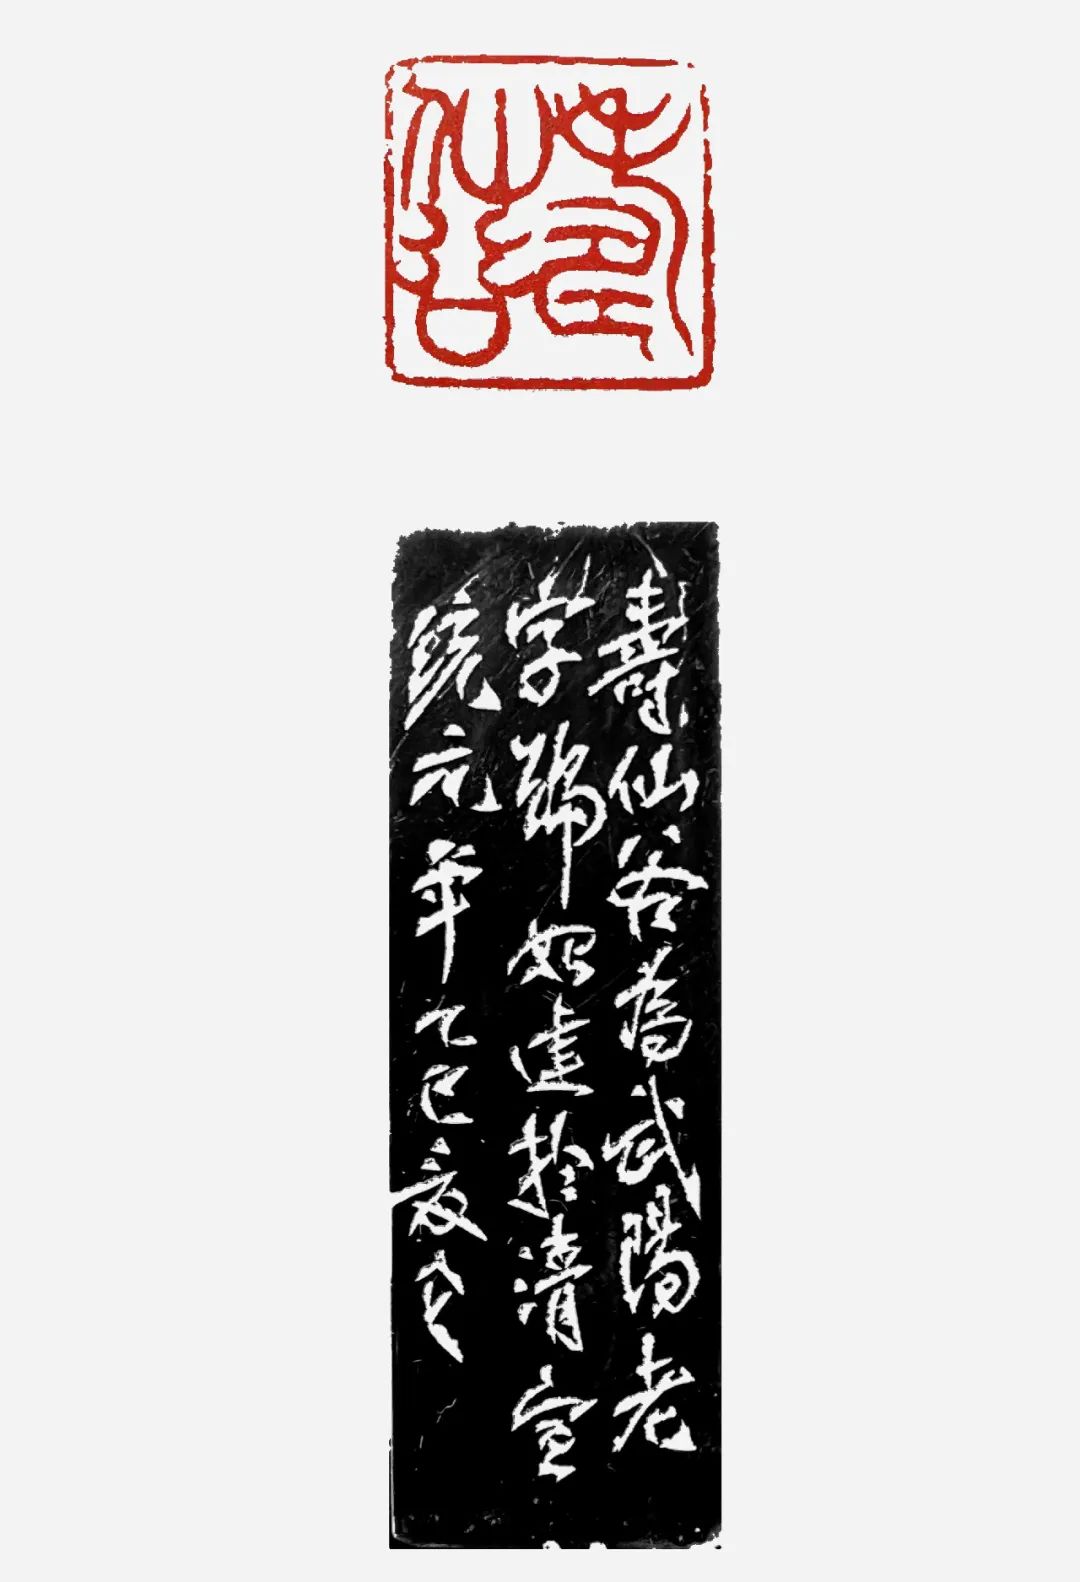 壽
仙谷
壽仙谷為武陽老
字號始建於清宣
統元年乙巳夏